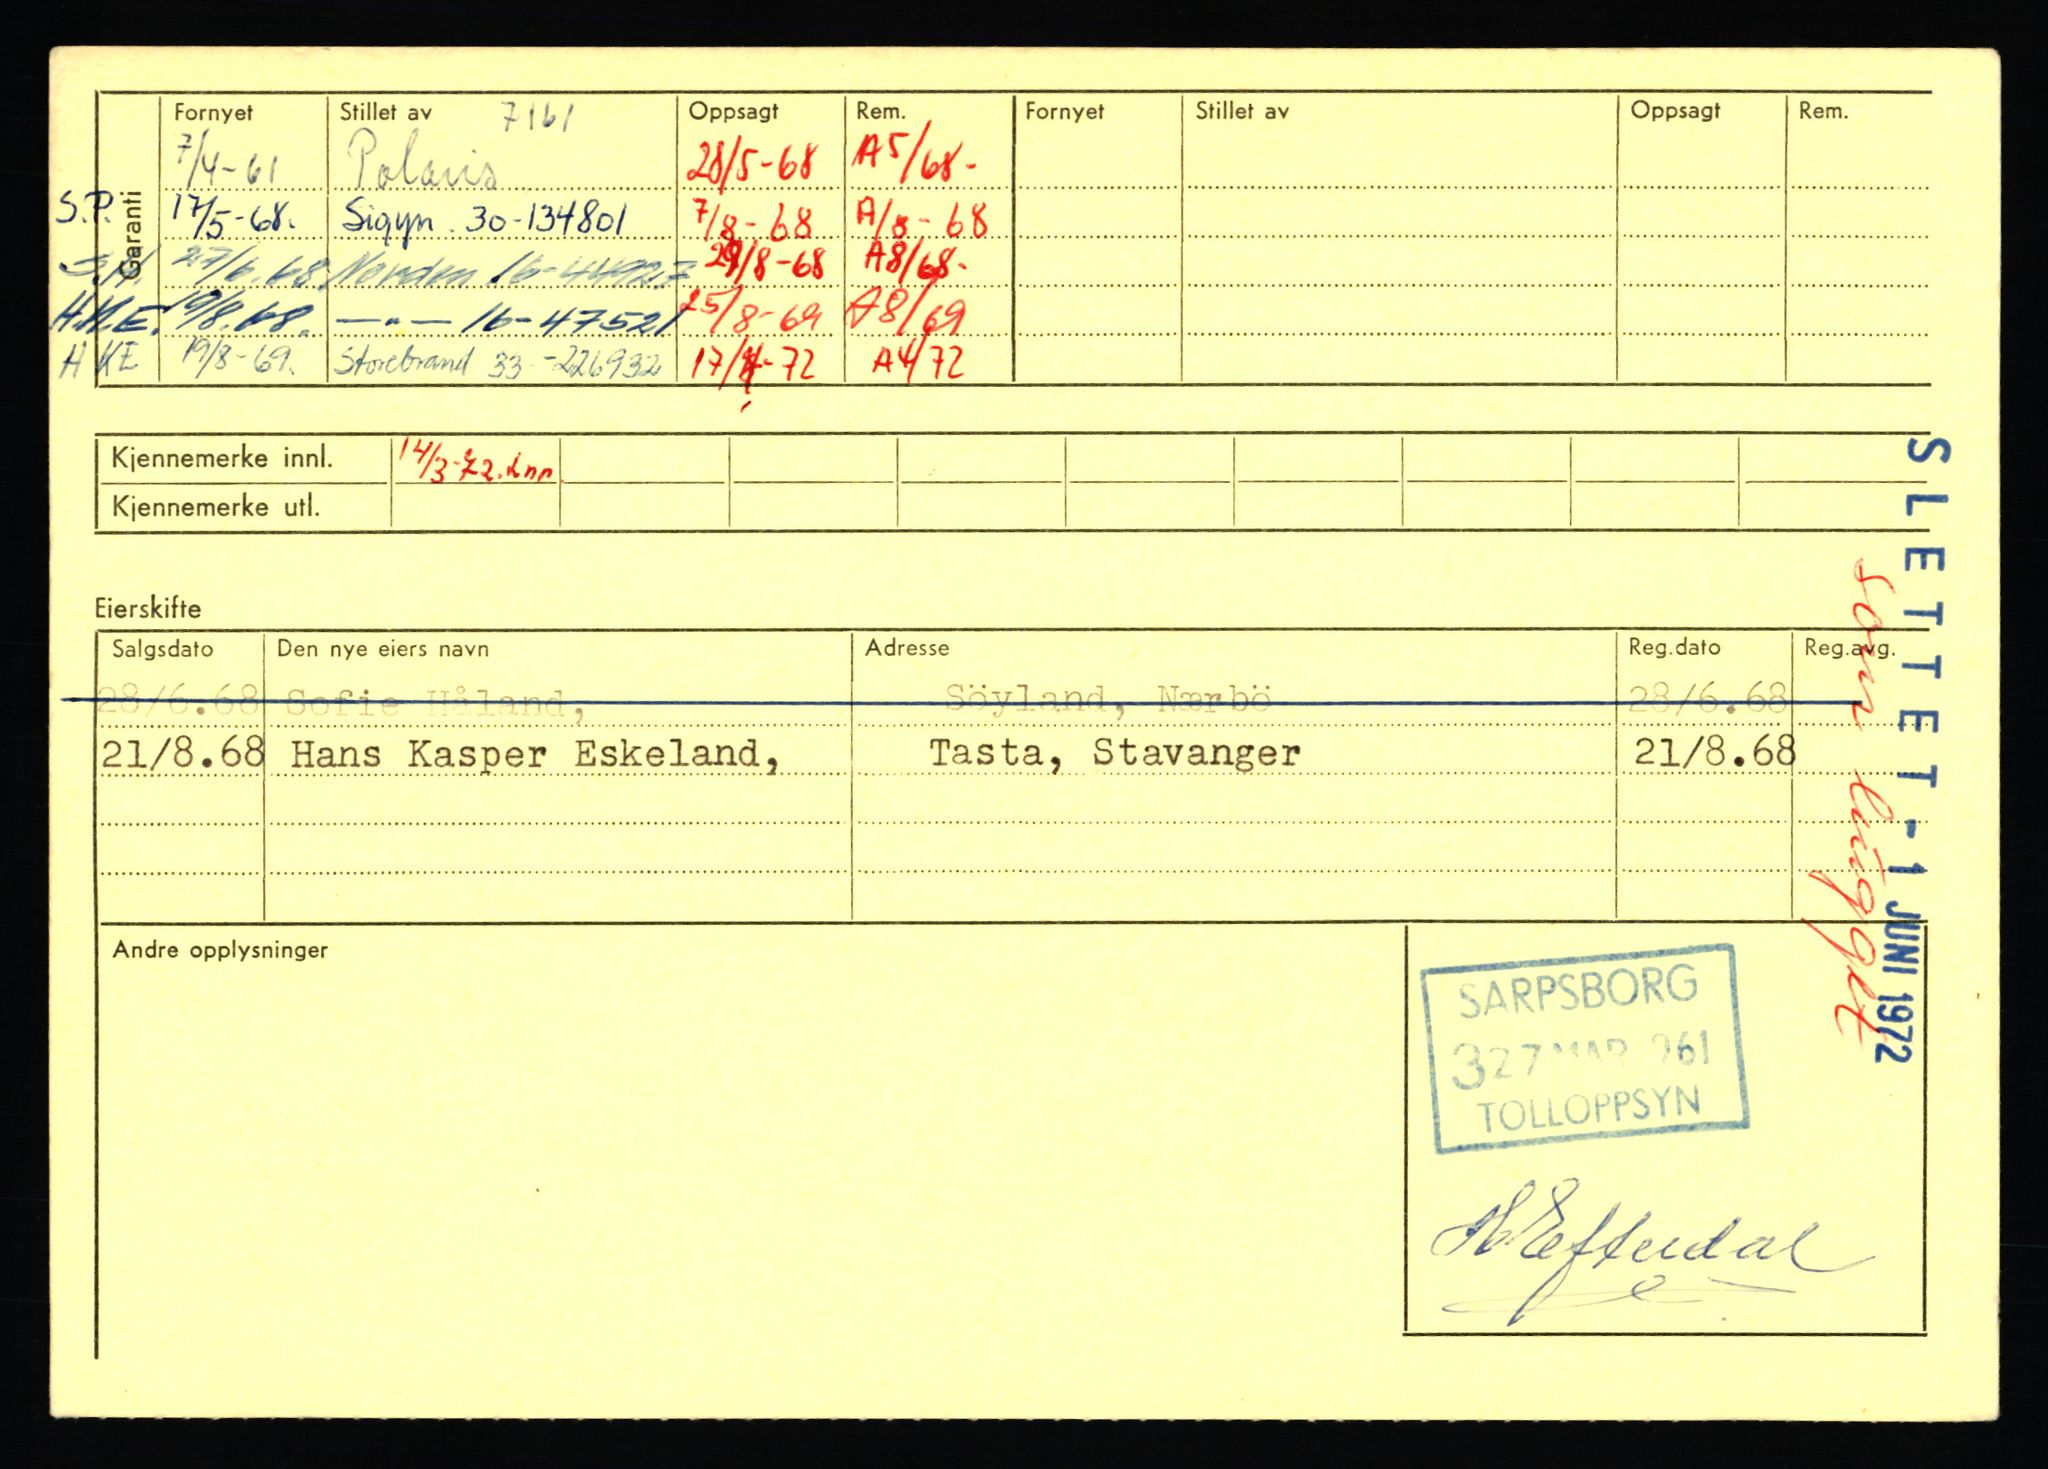 Fornyet Stillet av 7161 Oppsagt Rem. Fornyet Stillet av Oppsagt Rem.
Garanti
7/4-61 Polaris 28/5-68 A5/68-
S.P. 17/5-68. Sigyn. 30-134801 7/8-68 A/8-68
S.H. 27/6.68 Norden 16-44927 29/8-68 A8/68-
H.K.E. 19/8.68. —"— 16-47521 25/8-69 A8/69
HKE 19/8-69. Storebrand 33-226932 17/4-72 A4/72
Kjennemerke innl. 14/3-72.
Kjennemerke utl.
Eierskifte
Salgsdato Den nye eiers navn Adresse Reg.dato Reg.avg.
28/6.68 Sofie Håland, Söyland, Nærbö 28/6.68
21/8.68 Hans Kasper Eskeland, Tasta, Stavanger 21/8.68
Andre opplysninger
SLETTET - 1 JUNI 1972
som
SARPSBORG
327 MAR 961
TOLLOPPSYN